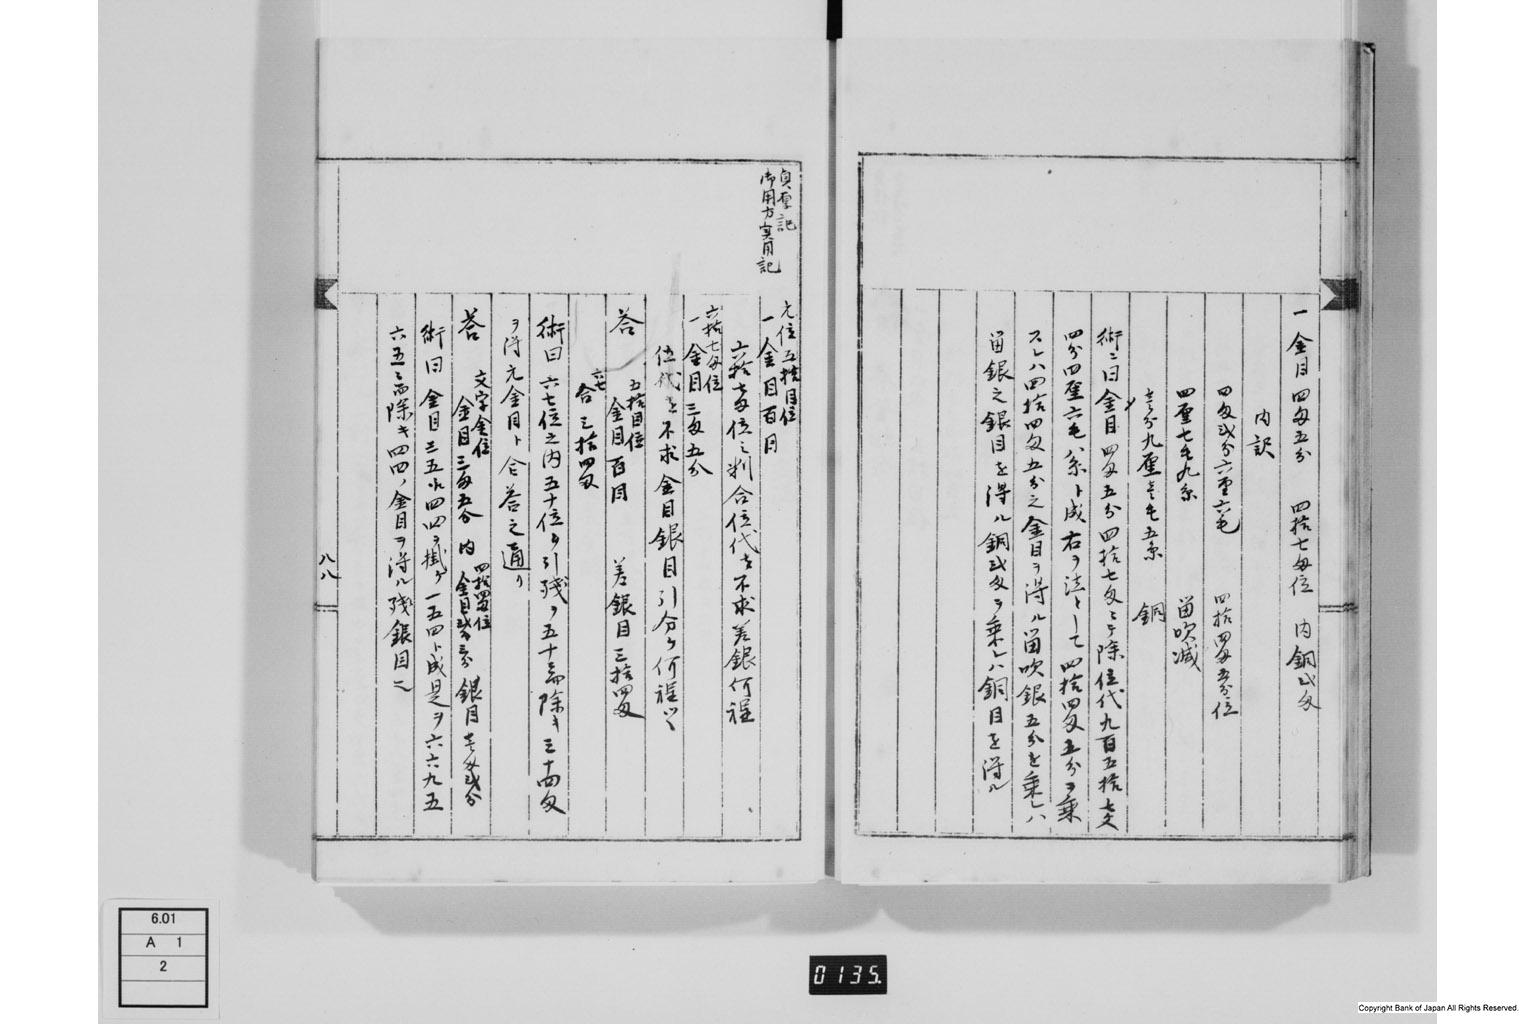 一金目四匁五分　四拾七匁位　内銅弐匁
内訳
四匁弐分六厘六毛　四拾四匁五分位
四厘七毛九糸　留吹減
壱分九厘壱毛五糸　銅
術ニ曰金目四匁五分四拾七匁ニテ除位代九百五拾七文
四分四厘六毛八糸ト成右ヲ法トして四拾四匁五分ヲ乗
スレハ四拾四匁五分之金目ヲ得ル留吹銀五分を乗レハ
留銀之銀目を得ル銅弐匁ヲ乗レハ銅目を得ル
貞享記
御用方実用記
元位五拾目位
一金目百目
六拾七匁位之判合位代を不求差銀何程
六拾七匁位
一金目三匁五分
位代を不求金目銀目引分ケ何程
答
五拾目位
金目百目　差銀目三拾四匁
合三拾四匁
術曰六七位之内五十位ヲ引残ヲ五十ニ而除キ三十四匁
ヲ得元金目ト合答之通り
答
文字金位
金目三匁五分　内
四拾四匁位
金目弐匁三分　銀目壱匁弐分
術曰金目三五ニ四四ヲ掛ケ一五四ト成是ヲ六六九五
六五ニ而除キ四四ノ金目ヲ得ル残銀目也
八八
6.01
A 1
2
0135.
Copyright Bank of Japan All Rights Reserved.